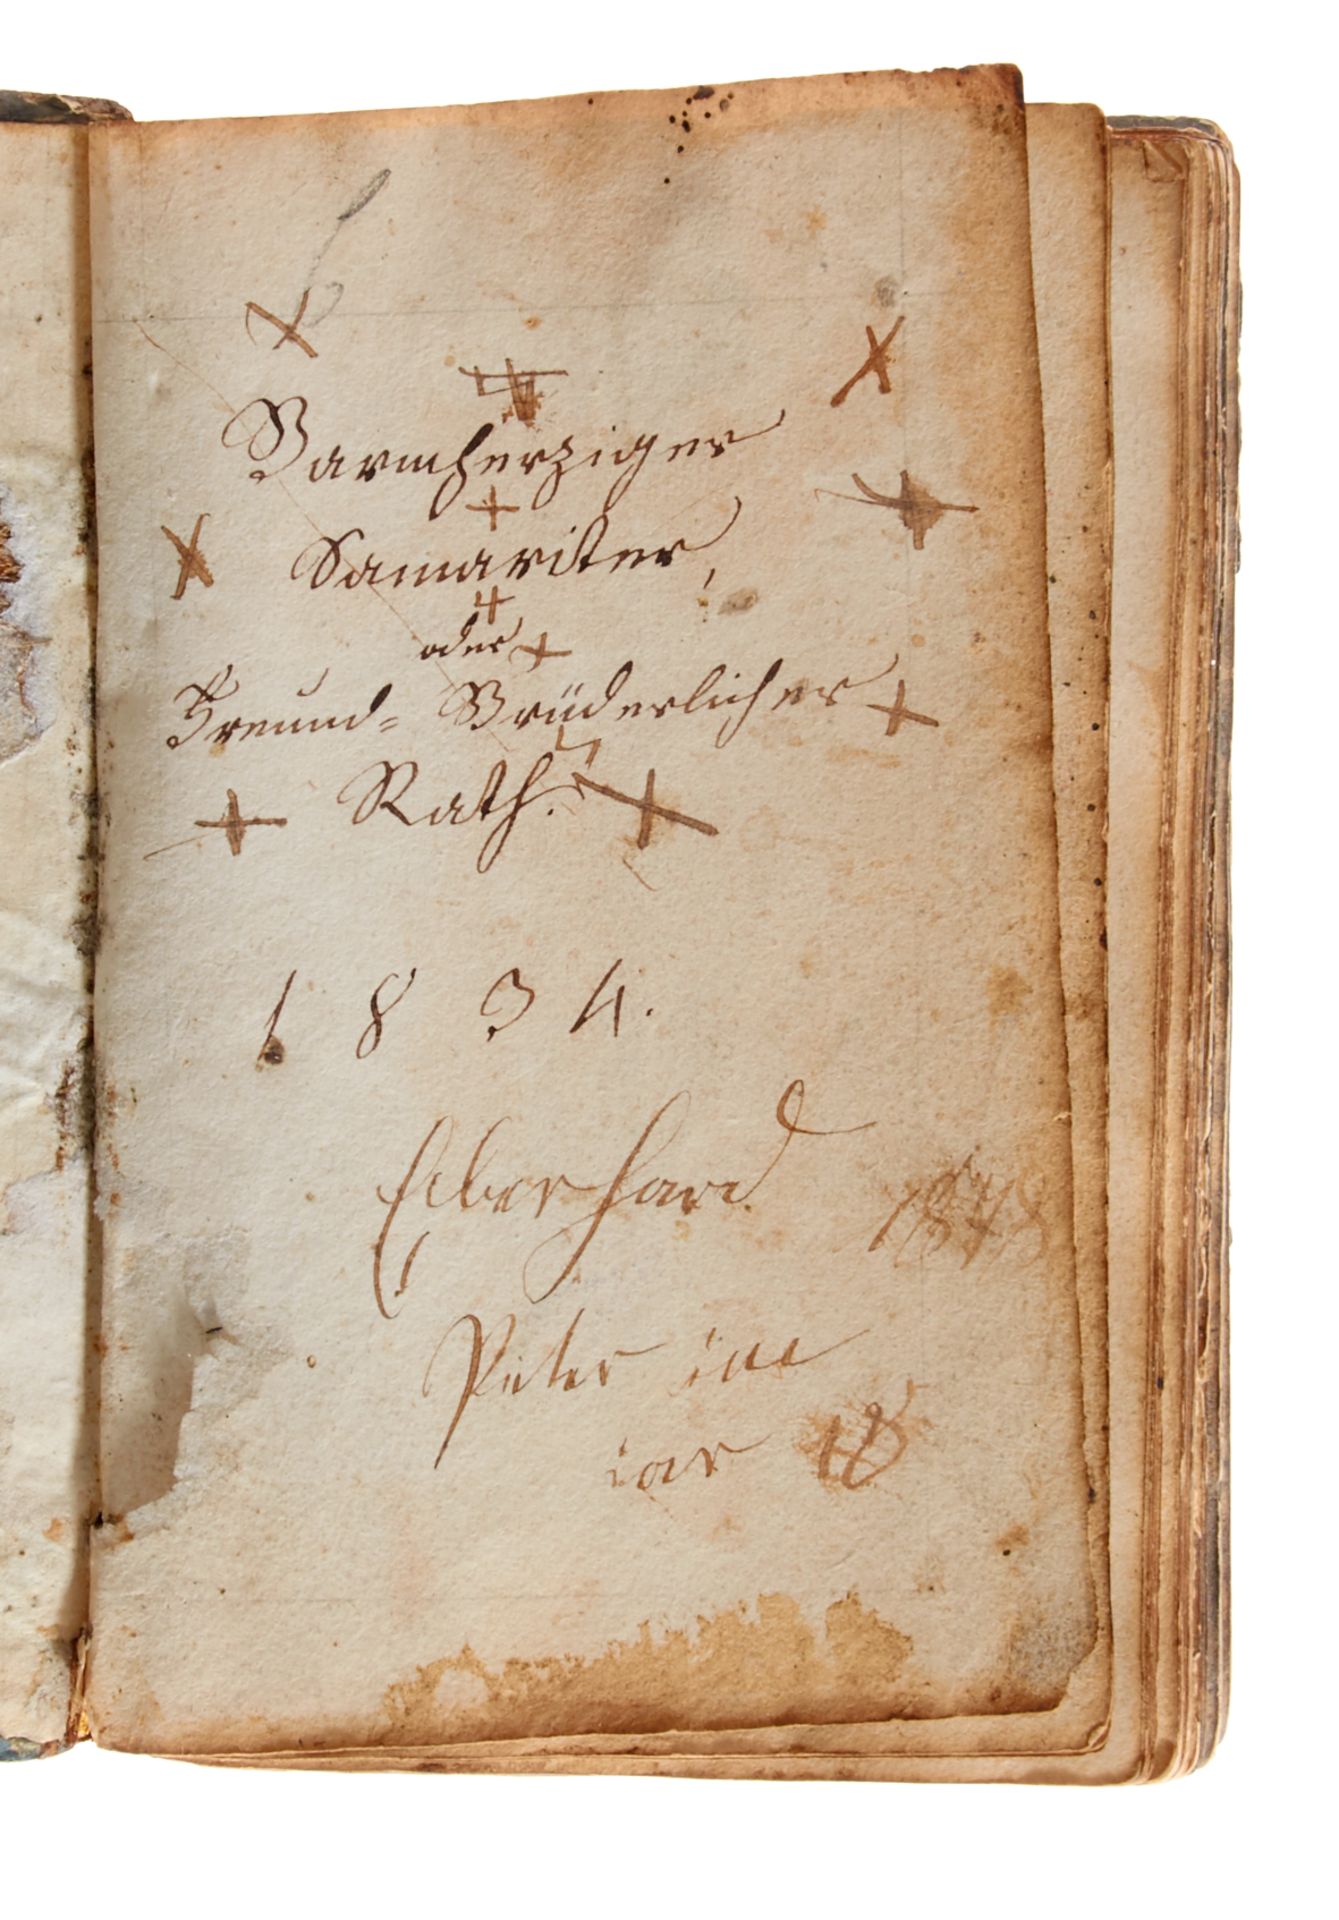 Barmherziger
Samariter,
oder
Freund= Brüderlicher
Rath.
1834.
Eberhard
1878
Peter im
iar